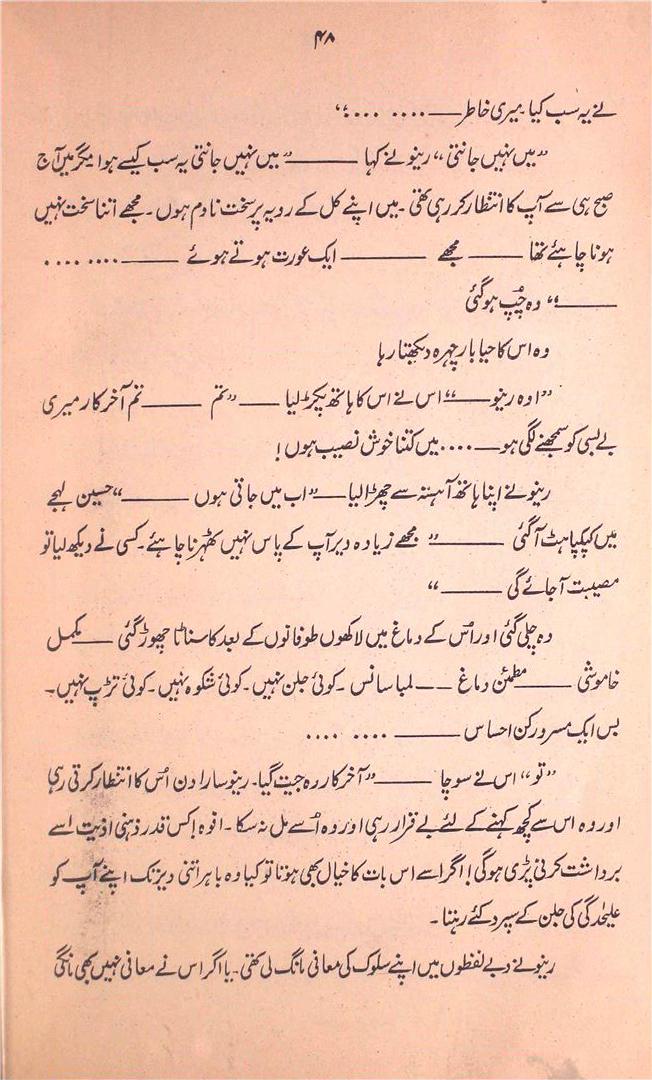 ۴۸
نے یہ سب کیا۔ میری خاطر ــــــ .... ....“
”میں نہیں جانتی“ رینو نے کہا ــــــ ”میں نہیں جانتی یہ سب کیسے ہوا مگر میں آج
صبح ہی سے آپ کا انتظار کر رہی تھی۔ میں اپنے کل کے رویہ پر سخت نادم ہوں۔ مجھے اتنا سخت نہیں
ہونا چاہئے تھا ــــــ مجھے ــــــ ایک عورت ہوتے ہوئے ــــــ .... ....
ــــــ“ وہ چُپ ہو گئی
وہ اس کا حیا بار چہرہ دیکھتا رہا
”اوہ رینو ــــــ“ اس نے اس کا ہاتھ پکڑ لیا ــــــ ”تم ــــــ تم آخر کار میری
بے بسی کو سمجھنے لگی ہو ــــــ .... میں کتنا خوش نصیب ہوں!
رینو نے اپنا ہاتھ آہستہ سے چھڑا لیا ــــــ ”اب میں جاتی ہوں ــــــ“ حسین لہجے
میں کپکپاہٹ آ گئی ــــــ ”مجھے زیادہ دیر آپ کے پاس نہیں ٹھہرنا چاہئے۔ کسی نے دیکھ لیا تو
مصیبت آ جائے گی ــــــ“
وہ چلی گئی اور اُس کے دماغ میں لاکھوں طوفانوں کے بعد کا سناٹا چھوڑ گئی ــــــ مکمل
خاموشی ــــــ مطمئن دماغ ــ ــ لمبا سانس۔ کوئی جلن نہیں۔ کوئی شکوہ نہیں۔ کوئی تڑپ نہیں۔
بس ایک مسرور کن احساس ــــــ .... ....
”تو“ اس نے سوچا ــــــ ”آخر کار وہ جیت گیا۔ رینو سارا دن اُس کا انتظار کرتی رہی
اور وہ اس سے کچھ کہنے کے لئے بے قرار رہی اور وہ اُسے مل نہ سکا۔ افوہ! کس قدر ذہنی اذیت اسے
برداشت کرنی پڑی ہوگی! اگر اسے اس بات کا خیال بھی ہوتا تو کیا وہ باہر اتنی دیر تک اپنے آپ کو
علیحدگی کی جلن کے سپرد کئے رہتا۔
رینو نے دبے لفظوں میں اپنے سلوک کی معافی مانگ لی تھی۔ یا اگر اس نے معافی نہیں بھی مانگی